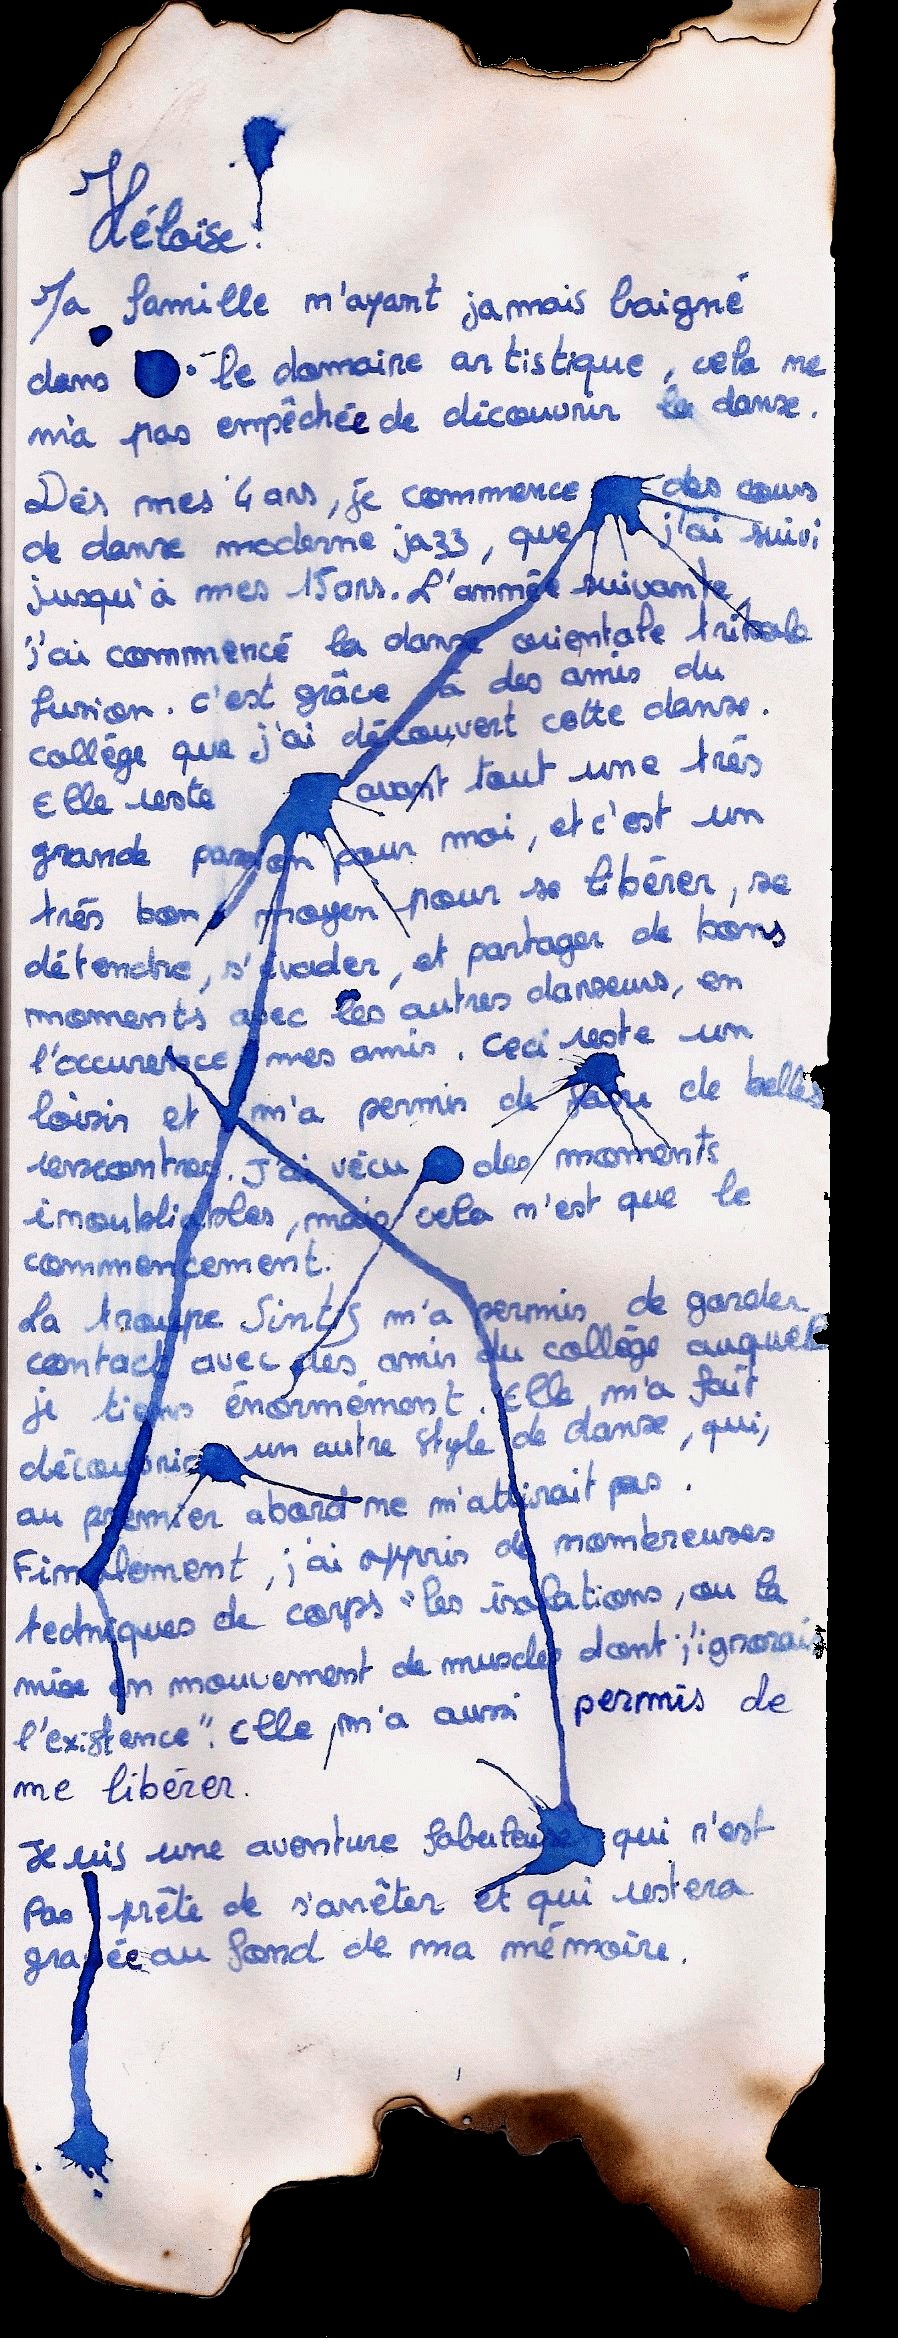 Héloïse:
Ma famille m'ayant jamais baigné
dans le domaine artistique, cela ne
m'a pas empêchée de découvrir la danse.
Dés mes 4 ans, je commence des cours
de danse moderne jazz, que j'ai suivi
jusqu'à mes 15 ans. L'année suivante,
j'ai commencé la danse orientale tribale
fusion. C'est grâce à des amis du
collége que j'ai découvert cette danse.
Elle reste avant tout une trés
grande passion pour moi, et c'est un
trés bon moyen pour se libérer, se
détendre, s'évader, et partager de bons
moments avec les autres danseurs, en
l'occurence mes amis. Ceci reste un
loisir et m'a permis de faire de belles
rencontres. J'ai vécu des moments
inoubliables, mais cela n'est que le
commencement.
La troupe m'a permis de garder
contact avec des amis du collége auquel
je tiens énormément. Elle m'a fait
découvrir un autre style de danse, qui,
au premier abord ne m'attirait pas.
Finalement, j'ai appris de nombreuses
techniques de corps "les isolations, ou la
mise en mouvement de muscles dont j'ignorais
l'existence". Elle m'a aussi permis de
me libérer.
Je vis une aventure fabuleuse qui n'est
pas prête de s'arrêter et qui restera
gravée au fond de ma mémoire.